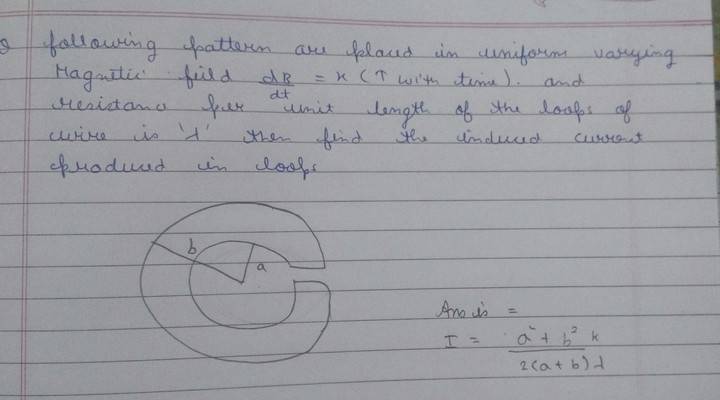 Q following pattern are placed in uniform varying
Magnetic field dB/dt = K (↑ with time). and
resistance per unit length of the loops of
wire is 'λ' then find the induced current
produced in loops
b
a
Ans is =
I = a² + b² K
2(a + b) λ